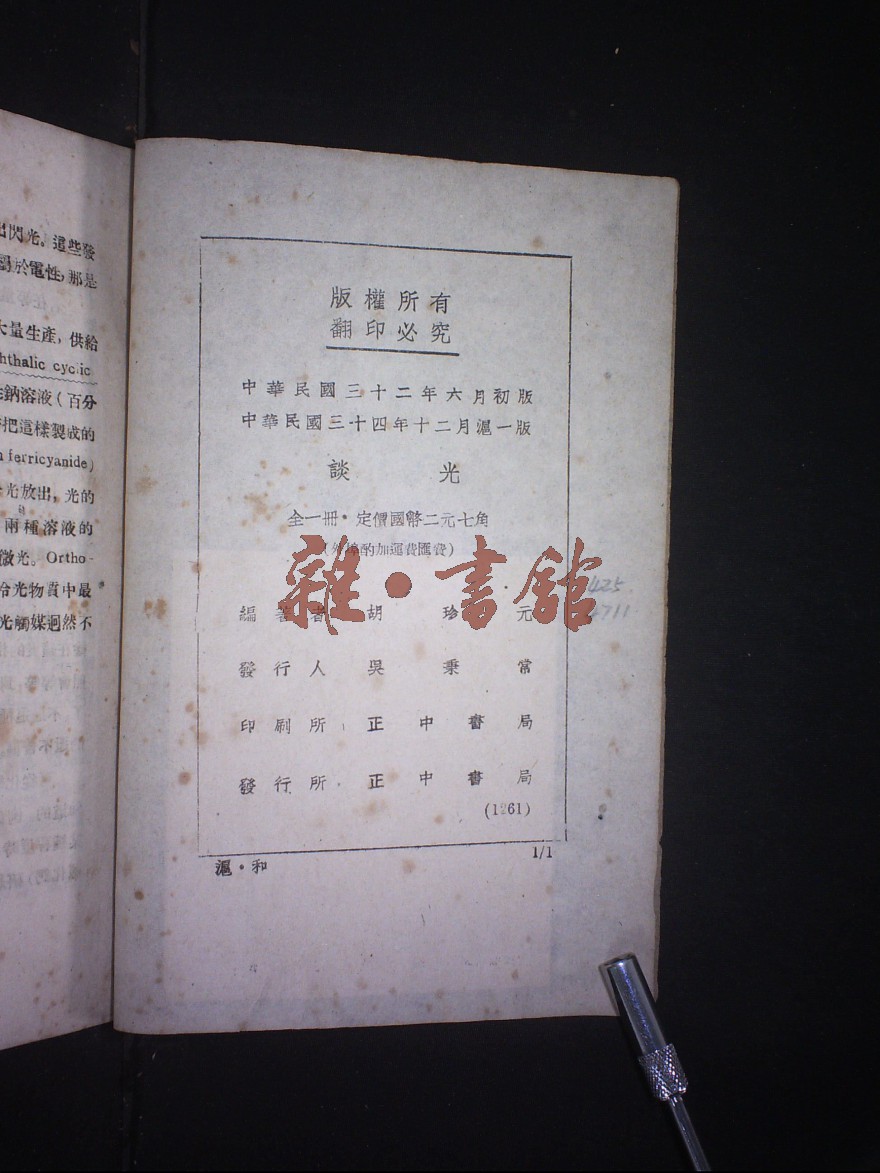 出閃光。這些發
屬於電性，那是
大量生產，供給
hthalic cyclic
鈉溶液（百分
把這樣製成的
ferricyanide)
光放出，光的
兩種溶液的
微光。Ortho-
冷光物質中最
光觸媒迥然不
版權所有
翻印必究
中華民國三十二年六月初版
中華民國三十四年十二月滬一版
談光
全一冊·定價國幣二元七角
(外埠酌加運費匯費)
雜·書館
425
4711
編著者 胡珍元
發行人 吳秉常
印刷所 正中書局
發行所 正中書局
(1261)
滬·和
1/1